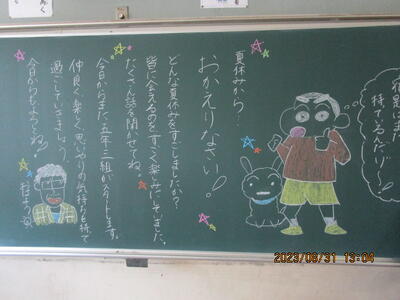 夏休みから…
おかえりなさい!
どんな夏休みをすごしましたか?
皆に会えるのをすごく楽しみにしていました。
たくさん話を聞かせてね。
今日からまた五年二組が入りします。
仲良く楽しく思いやりの気持ちを持て
過ごしていきましょう。
今日からもよろしくね!
宿題はまだ
持てるんだけど〜
2023/08/31 13:04